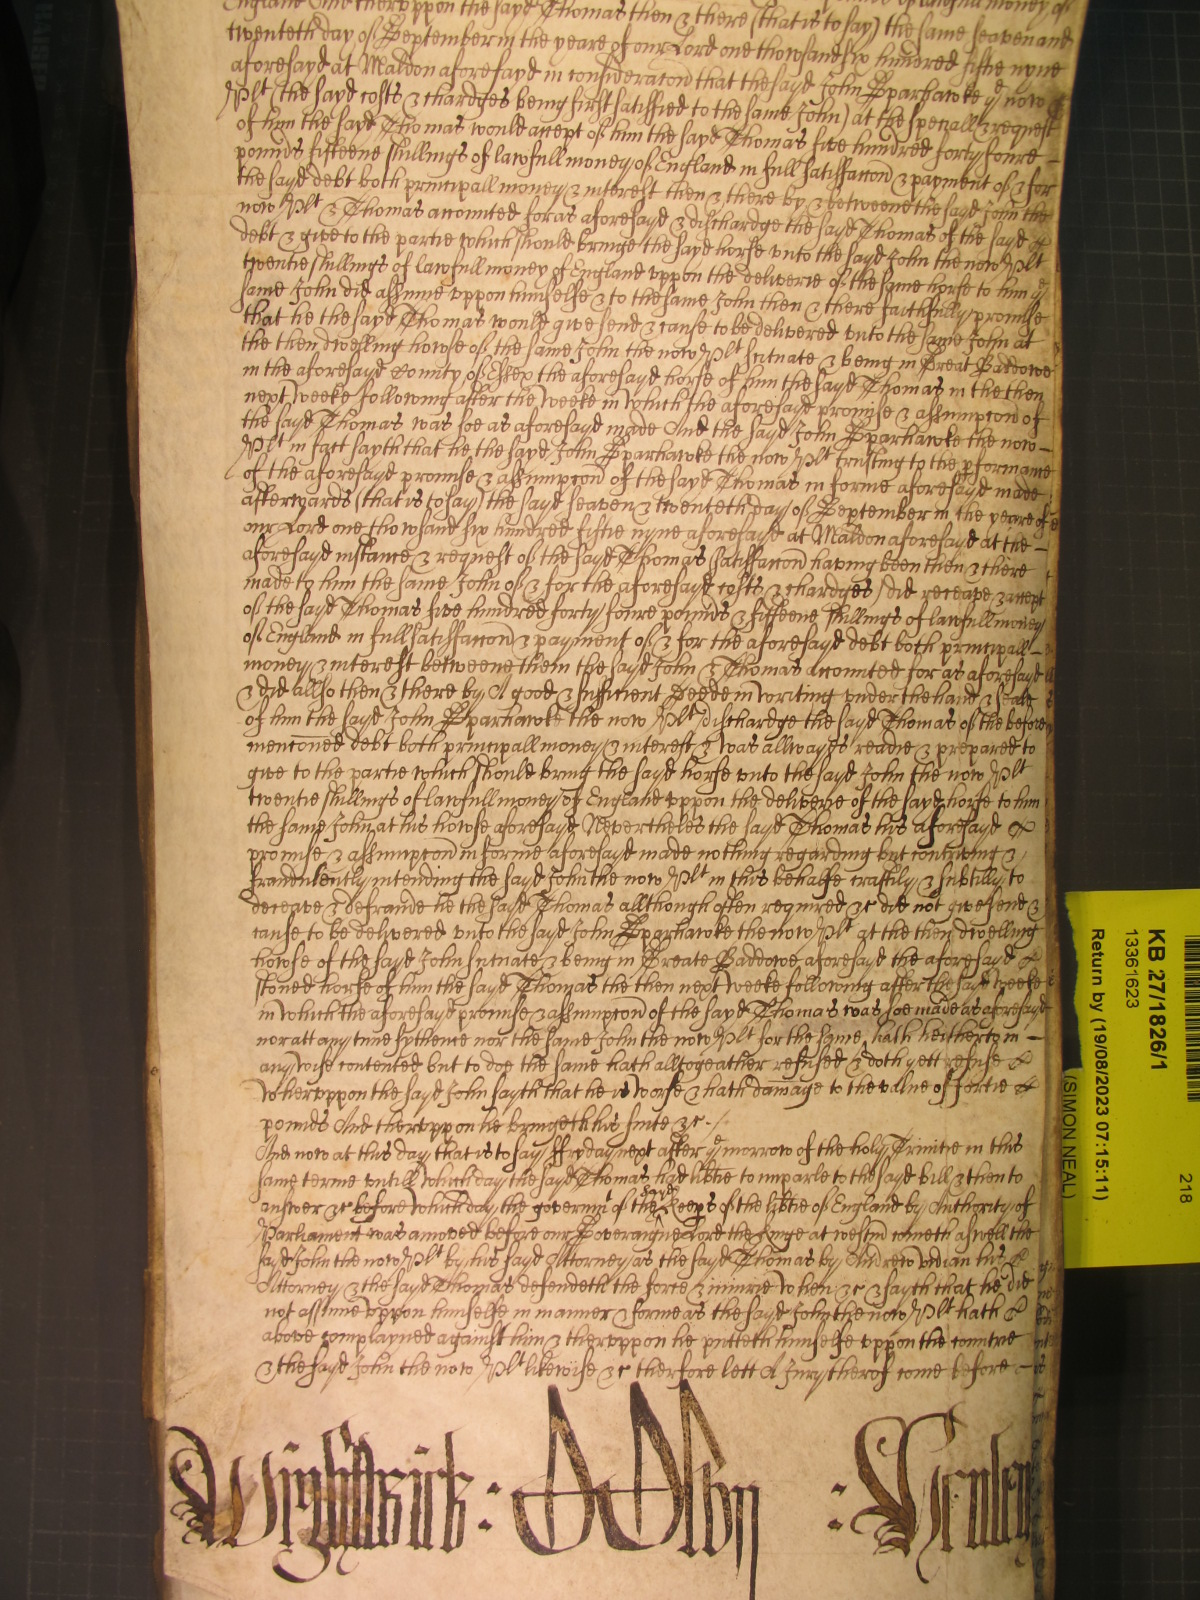 England And theruppon the sayd Thomas then & there (that is to say) the same seaven and
twenteth day of September in the yeare of our Lord one thowsand six hundred fiftie nyne
aforesayd at Maldon aforesayd in consideracon that the sayd John Sparhawke ye now
Plt (the sayd costs & chardges being first satisfied to the same John) at the speciall request
of him the sayd Thomas would accept of him the sayd Thomas five hundred forty foure
pounds fifteene shillings of lawfull money of England in full satisfaccon & payment of & for
the sayd debt both principall money & interest then & there by & betweene the sayd John the
now Plt & Thomas accounted for as aforesayd & dischardge the sayd Thomas of the sayd
debt & give to the partie which should bringe the sayd horse unto the sayd John the now Plt
twentie shillings of lawfull money of England uppon the deliverie of the same horse to him ye
same John did assume uppon himselfe & to the same John then & there faithfully promise
that he the sayd Thomas would give send & cause to be delivered unto the same John at
the then dwelling howse of the same John the now Plt scituate & being in Great Baddowe
in the aforesayd County of Essex the aforesayd horse of him the sayd Thomas in the then
next weeke following after the weeke in which the aforesayd promise & assumpcon of
the sayd Thomas was soe as aforesayd made And the sayd John Sparhawke the now
Plt in fact sayth that he the sayd John Sparhawke the now Plt trusting to the pformance
of the aforesayd promise & assumpcon of the sayd Thomas in forme aforesayd made
afterwards (that is to say) the sayd seaven & twenteth day of September in the yeare of
our Lord one thowsand six hundred fiftie nyne aforesayd at Maldon aforesayd at the
aforesayd instance & request of the sayd Thomas (satisfaccon having been then & there
made to him the same John of & for the aforesayd costs & chardges) did receave & accept
of the sayd Thomas five hundred forty foure pounds & fifteene shillings of lawfull money
of England in full satisfaccon & payment of & for the aforesayd debt both principall
money & interest betweene them the sayd John & Thomas accounted for as aforesayd
& did allso then & there by A good & sufficient Deede in writing under the hand & seale
of him the sayd John Sparhawke the now Plt dischardge the sayd Thomas of the before
menconed debt both principall money & interest & was allwayes readie & prepared to
give to the partie which should bring the sayd horse unto the sayd John the now Plt
twentie shillings of lawfull money of England uppon the deliverie of the sayd horse to him
the same John at his howse aforesayd Nevertheles the sayd Thomas his aforesayd
promise & assumpcon in forme aforesayd made nothing regarding but contriving &
fraudulently intending the sayd John the now Plt in this behalfe craftily & subtilly to
deceave & defraude he the sayd Thomas allthough often required &c did not give send &
cause to be delivered unto the sayd John Sparhawke the now Plt at the then dwelling
howse of the sayd John scituate & being in Greate Baddowe aforesayd the aforesayd
stoned horse of him the sayd Thomas the then next weeke following after the sayd weeke
in which the aforesayd promise & assumpcon of the sayd Thomas was soe made as aforesayd
nor att any time sythence nor the same John the now Plt for the same hath hitherto in
any wise contented but to doe the same hath alltogeather refused & doth yett refuse
Wheruppon the sayd John sayth that he is worse & hath damage to the value of fortie
pounds And theruppon he bringeth his suite &c
And now at this day that is to say ffryday next after ye morrow of the holy Trinitie in this
same terme untill which day the sayd Thomas had libtie to imparle to the sayd bill & then to
answer &c before which day the governmt of the late Keeps of the libtie of England by Authority of
Parliament was amoved before our Soveraigne Lord the Kinge at westm cometh aswell the
sayd John the now Plt by his sayd Attorney as the sayd Thomas by Andrew his
Attorney & the sayd Thomas defendeth the force & iniurie when &c & sayth that he did
not assume uppon himselfe in manner & forme as the sayd John the now Plt hath
above complayned against him & theruppon he putteth himselfe uppon the countrie
& the sayd John the now Plt likewise &c therfore lett A Jury therof come before
KB 27/1826/1
13361623
218
Return by (19/08/2023 07:15:11)
(SIMON NEAL)